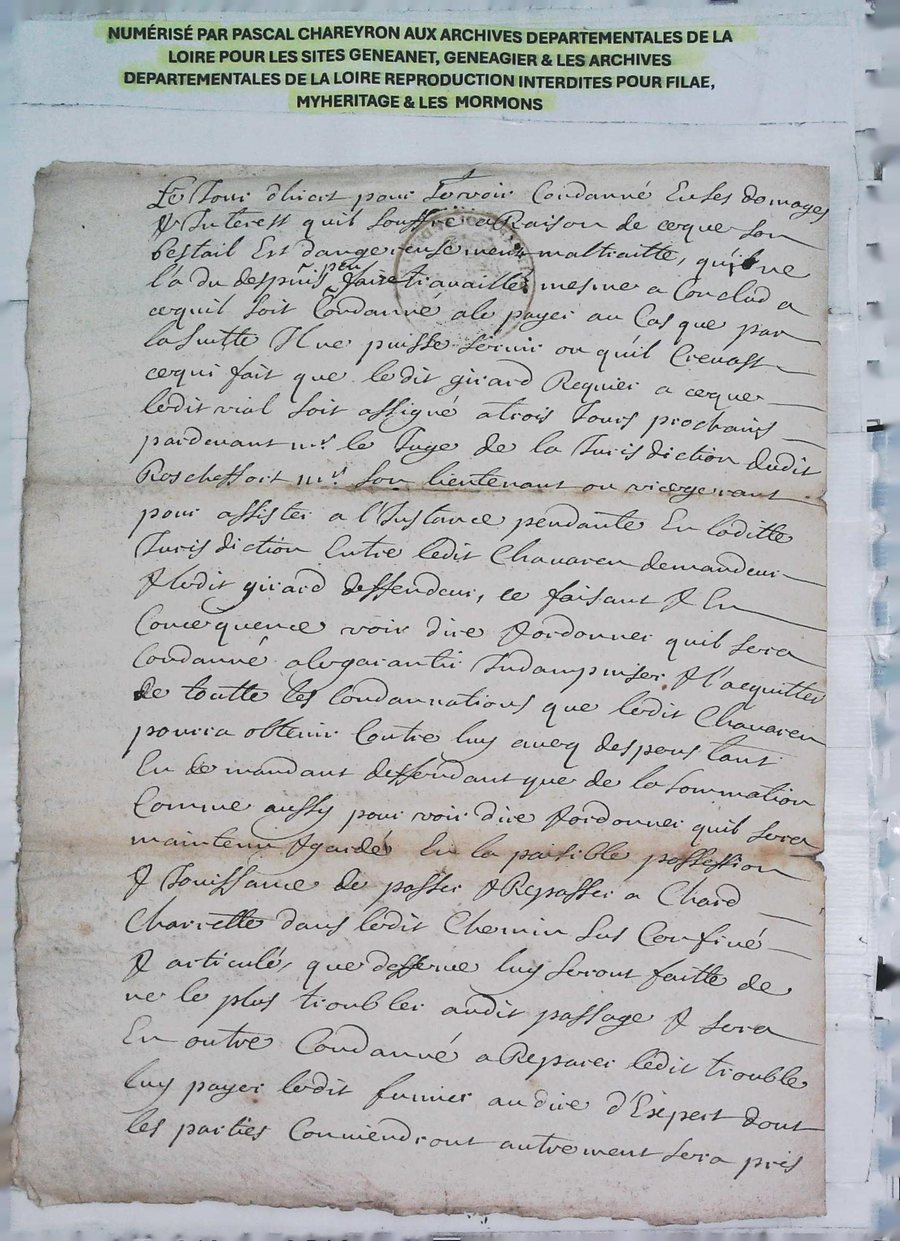 NUMÉRISÉ PAR PASCAL CHAREYRON AUX ARCHIVES DEPARTEMENTALES DE LA
LOIRE POUR LES SITES GENEANET, GENEAGIER & LES ARCHIVES
DEPARTEMENTALES DE LA LOIRE REPRODUCTION INTERDITES POUR FILAE,
MYHERITAGE & LES MORMONS
Le Jour d'hier pour se voir Condanné En ses domages
& Interest quil souffre a Raison de ceque son
bestail Est dangereusement maltraitte, quil ne
l'a du despuis peu faire travailler mesme a Conclud a
cequil soit Condanné a le payer au Cas que par
la suitte Il ne puisse servir ou quil Crevast
cequi fait que ledit girard Requier a ceque
ledit vial soit assigné a trois Jours prochains
pardevant mr le Juge de la Jurisdiction dudit
Roscheffort mr son lieutenant ou vicegerant
pour assister a l'Instance pendante En laditte
Jurisdiction Entre ledit Chavaren demandeur
& ledit girard deffendeur, ce faisant & En
Concequence voir dire & ordonner quil sera
Condanné a le garantir Indampniser & l'acquitter
de toutte les Condamnations que ledit Chavaren
pourra obtenir Contre luy avecq despens tant
En demandant deffendant que de la sommation
Comme aussy pour voir dire & ordonner quil sera
maintenu & gardé En la paisible possession
& Jouissance de passer & Repasser a Chard
Charrette dans ledit Chemin sus Confiné
& articulé, que deffence luy seront faitte de
ne le plus troubler audit passage & sera
En outre Condanné a Reparer ledit trouble
luy payer ledit fumier au dire d'Expert dont
les parties Conviendront autrement sera pris